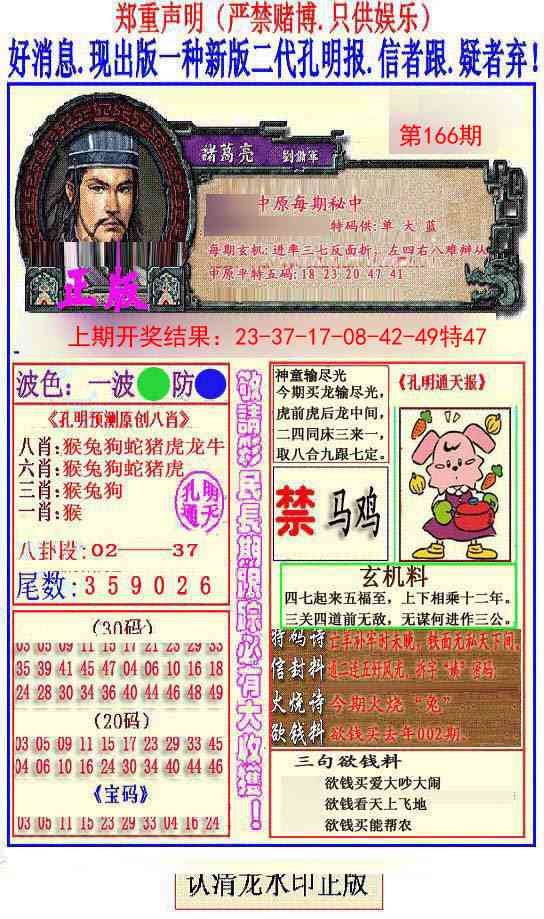 郑重声明（严禁赌博.只供娱乐）
好消息.现出版一种新版二代孔明报.信者跟.疑者弃!
諸葛亮 劉備軍
第166期
中原每期秘中
特码供:单 大 蓝
每期玄机:进率三七反面折、左四右八难辩从
中原平特五码:18 23 20 47 41
正版
上期开奖结果：23-37-17-08-42-49特47
波色：一波 防
《孔明预测原创八肖》
八肖:猴兔狗蛇猪虎龙牛
六肖:猴兔狗蛇猪虎
三肖:猴兔狗
一肖:猴
孔明
通天
八卦段:02——37
尾数:359026
(30码)
03 05 09 11 15 17 23 29 33
35 39 41 45 47 04 06 10 16 18
24 28 30 34 36 40 44 46 48 49
(20码)
03 05 09 11 15 17 23 29 33 45
04 06 10 16 24 30 34 40 44 46
《宝码》
03 05 11 15 23 29 33 04 16 24
敬請彩民長期跟踪必有大收獲！
神童输尽光
今期买龙输尽光，
虎前虎后龙中间，
二四同床三来一，
取八合九跟七定。
《孔明通天报》
禁 马鸡
玄机料
四七起来五福至，上下相乘十二年。
三关四道前无敌，无谋何进作三公。
特码诗 亡羊补牢时未晚，铁面无私天下间。
信封料
火烧诗 今期火烧“兔”
欲钱料 欲钱买去年002期.
三句欲钱料
欲钱买爱大吵大闹
欲钱看天上飞地
欲钱买能帮农
认清龙水印正版